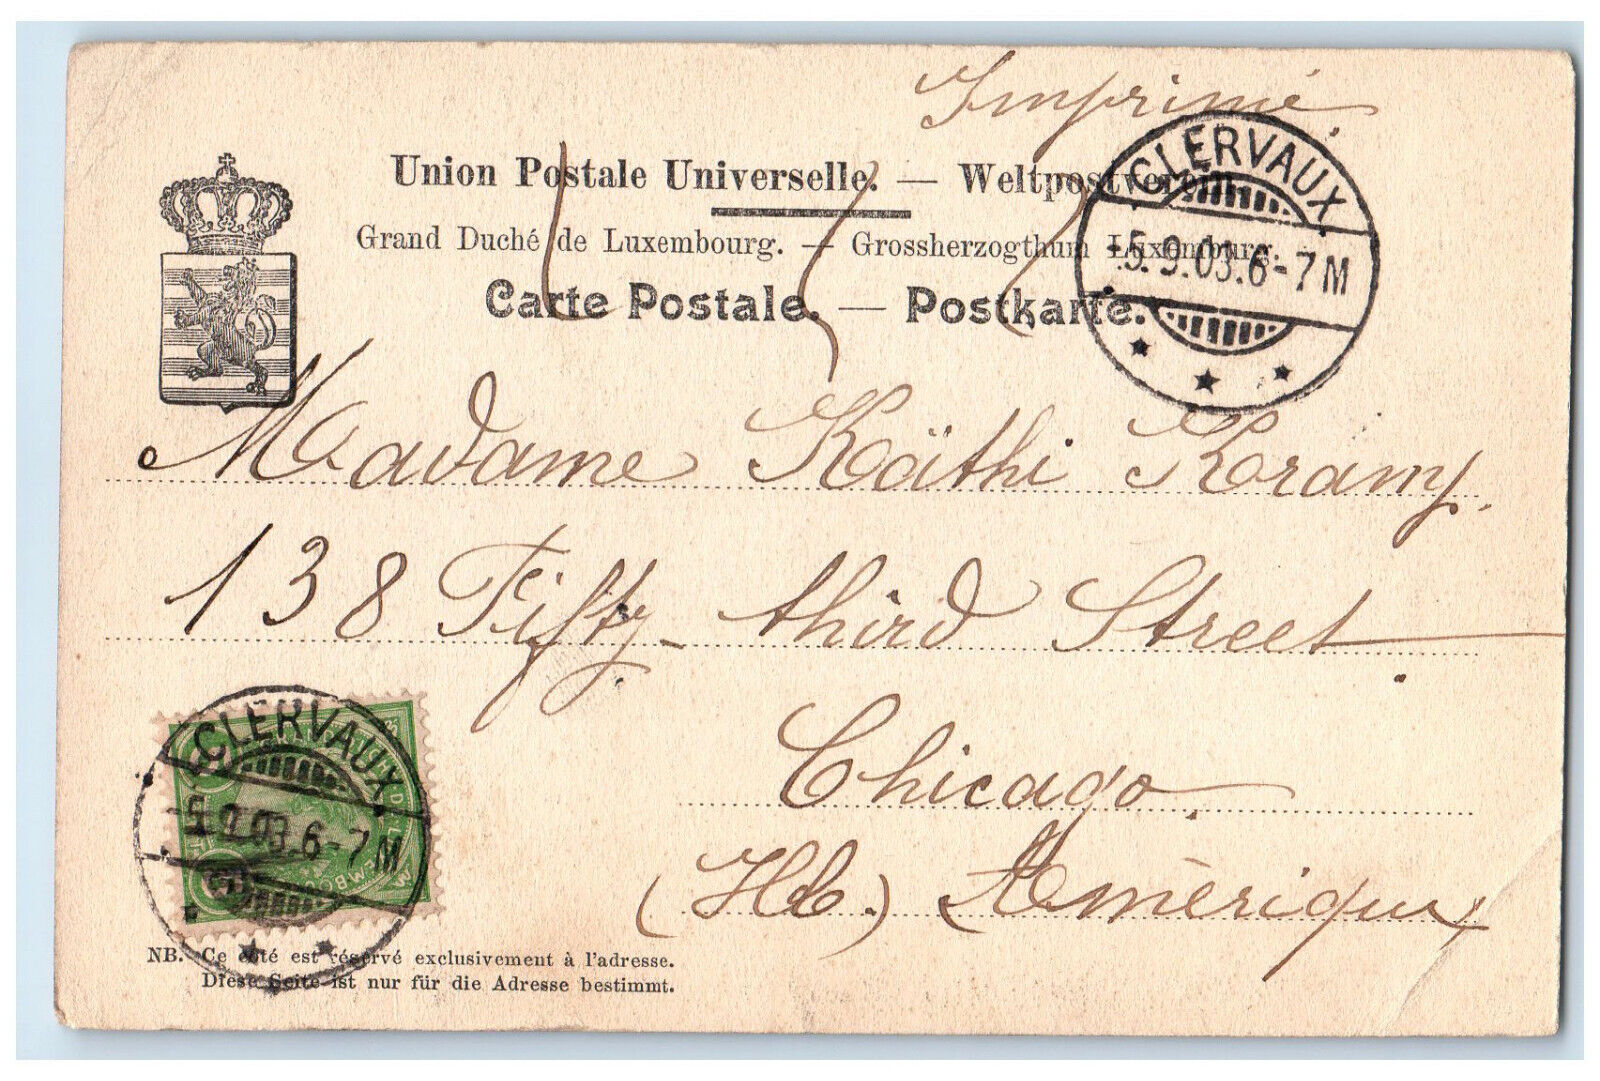 Imprimé.
Union Postale Universelle. — Weltpostverein.
Grand Duché de Luxembourg. — Grossherzogthum Luxemburg.
Carte Postale. — Postkarte.
CLERVAUX
-5.9.03.6-7M
Madame Käthi Kramy.
138 Fifty-third Street.
Chicago
CLERVAUX
-5.9.03.6-7M
Amérique
NB. Ce côté est réservé exclusivement à l'adresse.
Diese Seite ist nur für die Adresse bestimmt.